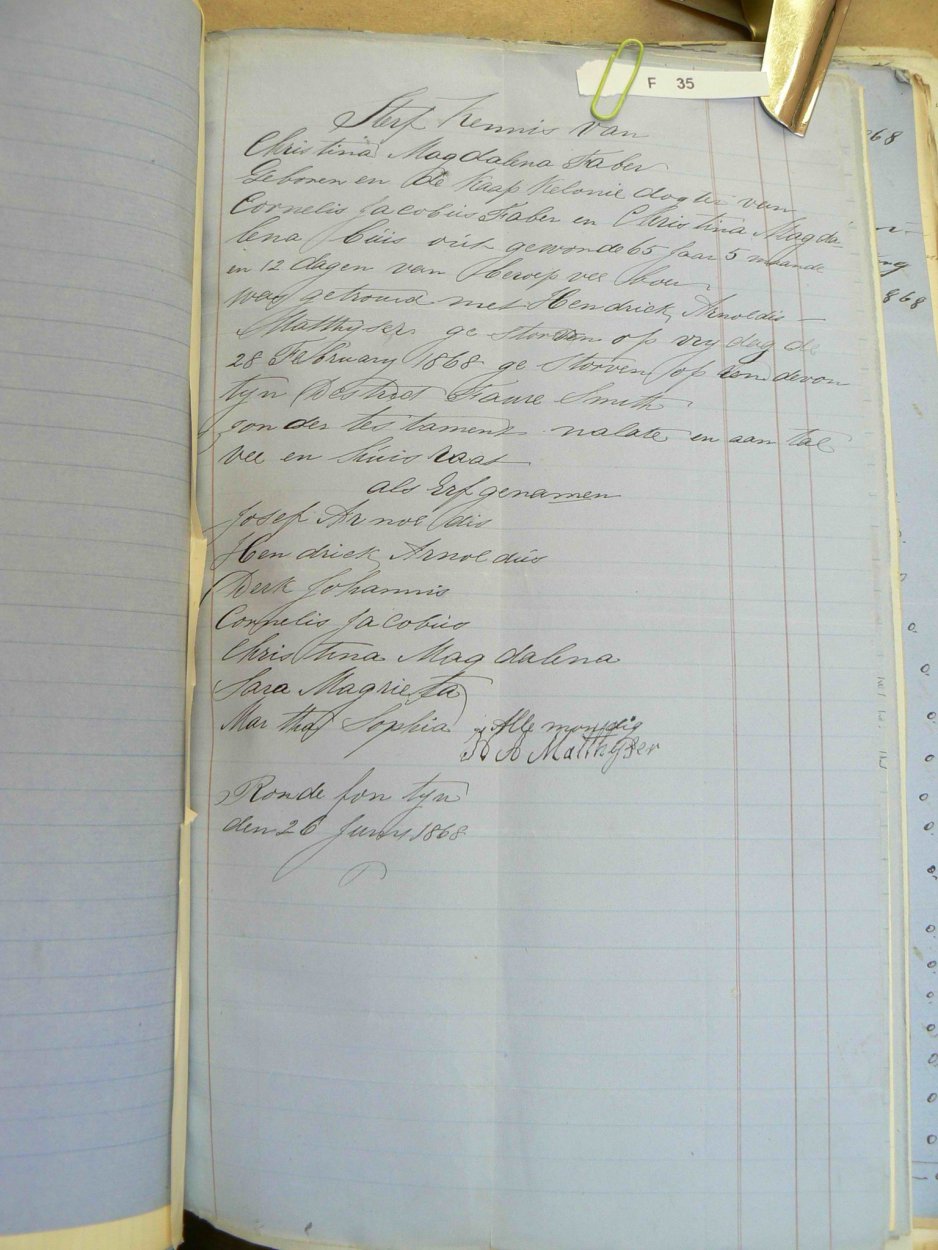 F 35
Sterf Kennis van
Christina Magdalena Faber
Geboren en de Kaap Kolonie dogter van
Cornelis Jacobus Faber en Christina Magda
lena Buis out gewonde 65 Jaar 5 maande
en 12 dagen van beroep vee boer
was getroud met Hendrick Arnoldis
Matthyser ge storven op vry dag de
28 February 1868 ge storven op
tyn Destrect Faure Smith
zonder testament nalate en aan tal
vee en huis raat
als Erf genamen
Josef Arnoldis
Hendrick Arnoldus
Derk Johannis
Cornelis Jacobus
Christina Magdalena
Sara Magrieta
Martha Sophia Alle mondig
H A Matthyser
Ronde fon tyn
den 26 Juny 1868